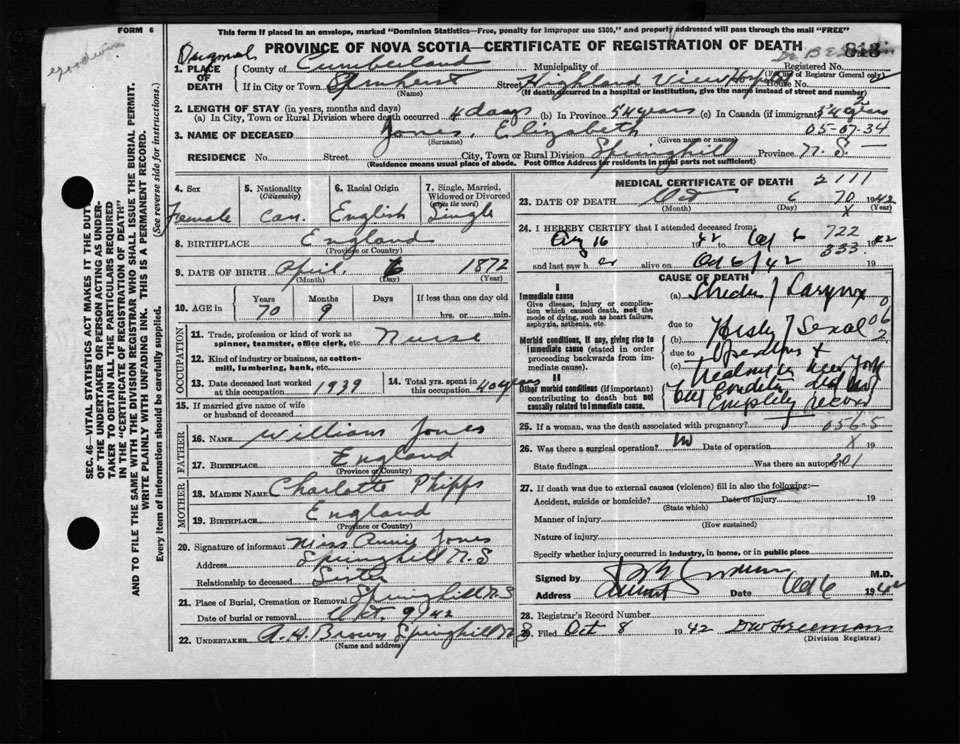 FORM 6
This form if placed in an envelope, marked "Dominion Statistics—Free, penalty for improper use $300," and properly addressed will pass through the mail "FREE"
Original
PROVINCE OF NOVA SCOTIA—CERTIFICATE OF REGISTRATION OF DEATH
813
1. PLACE OF DEATH
County of Cumberland Municipality of Registered No.
(For use of Registrar General only)
If in City or Town Amherst Street Highland View Hospital House No.
(Name) (If death occurred in a hospital or institution, give the name instead of street and number)
2. LENGTH OF STAY (in years, months and days)
(a) In City, Town or Rural Division where death occurred 4 days (b) In Province 54 years (c) In Canada (if immigrant) 54 years
05-07-34
3. NAME OF DECEASED Jones, Elizabeth
(Surname) (Given name or names)
RESIDENCE No. Street City, Town or Rural Division Springhill Province N.S.
(Residence means usual place of abode. Post Office Address for residents in rural parts not sufficient)
4. Sex Female
5. Nationality (Citizenship) Can.
6. Racial Origin English
7. Single, Married, Widowed or Divorced (Write the word) Single
8. BIRTHPLACE England
(Province or Country)
9. DATE OF BIRTH April 6 1872
(Month) (Day) (Year)
10. AGE in Years 70 Months 9 Days If less than one day old hrs. or min.
OCCUPATION
11. Trade, profession or kind of work as spinner, teamster, office clerk, etc. Nurse
12. Kind of industry or business, as cotton-mill, lumbering, bank, etc.
13. Date deceased last worked at this occupation 1939
14. Total yrs. spent in this occupation 40 years
15. If married give name of wife or husband of deceased
FATHER
16. NAME William Jones
17. BIRTHPLACE England
(Province or Country)
MOTHER
18. MAIDEN NAME Charlotte Phipps
19. BIRTHPLACE England
(Province or Country)
20. Signature of informant Miss Annie Jones
Address Springhill N.S
Relationship to deceased Sister
21. Place of Burial, Cremation or Removal Springhill N.S
Date of burial or removal Oct. 9/42
22. UNDERTAKER A. H. Brown Springhill N S
(Name and address)
MEDICAL CERTIFICATE OF DEATH 2111
23. DATE OF DEATH Oct 6 1942
70
(Month) (Day) (Year)
X
24. I HEREBY CERTIFY that I attended deceased from:
722
Aug 16 1942 to Oct 6 1942
333
and last saw her alive on Oct 6/42 19
CAUSE OF DEATH
I
Immediate cause
Give disease, injury or complication which caused death, not the mode of dying, such as heart failure, asphyxia, asthenia, etc.
(a) Larynx
due to
Morbid conditions, if any, giving rise to immediate cause (stated in order proceeding backwards from immediate cause).
(b)
due to
(c)
II
Other morbid conditions (if important) contributing to death but not causally related to immediate cause.
062
25. If a woman, was the death associated with pregnancy?
056-5
26. Was there a surgical operation? No Date of operation X 19
State findings Was there an autopsy?
201
27. If death was due to external causes (violence) fill in also the following:—
Accident, suicide or homicide? Date of injury 19
(State which)
Manner of injury
(How sustained)
Nature of injury
Specify whether injury occurred in industry, in home, or in public place
Signed by M.D.
Address Amherst Date Oct 6 1942
28. Registrar's Record Number
29. Filed Oct 8 1942 D W Freeman
(Division Registrar)
SEC. 46—VITAL STATISTICS ACT MAKES IT THE DUTY
OF THE UNDERTAKER OR PERSON ACTING AS UNDER-
TAKER TO OBTAIN ALL THE PARTICULARS REQUIRED
IN THE "CERTIFICATE OF REGISTRATION OF DEATH"
AND TO FILE THE SAME WITH THE DIVISION REGISTRAR WHO SHALL ISSUE THE BURIAL PERMIT.
WRITE PLAINLY WITH UNFADING INK. THIS IS A PERMANENT RECORD.
Every item of information should be carefully supplied. (See reverse side for instructions.)